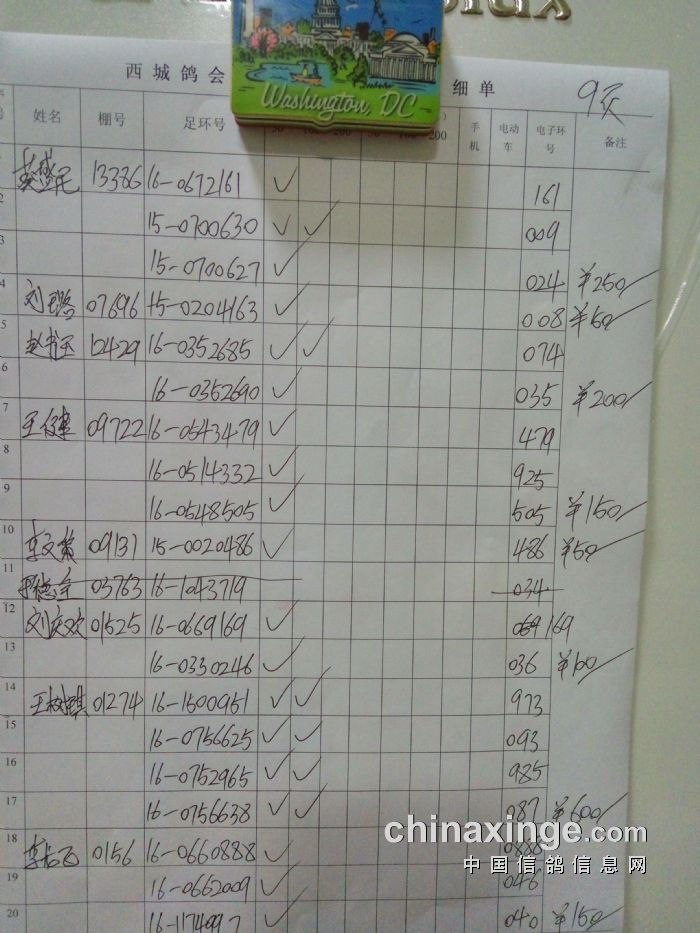 Washington, DC
西城鸽会 细单 9页
姓名 棚号 足环号 50 100 200 50 100 200 手机 电动车 电子环号 备注
13386 16-0672161 ✓ 161
2 15-0700630 ✓ ✓ 009
3 15-0700627 ✓ 024 ¥250/
4 刘玉路 07696 15-0204163 ✓ 008 ¥50/
5 赵书玉 12429 16-0352685 ✓ ✓ 074
6 16-0352690 ✓ 035 ¥200/
7 王俊革 09722 16-0543479 ✓ 479
8 16-0514332 ✓ 925
9 16-0548505 ✓ 505 ¥150/
10 李文 09131 15-0020486 ✓ 486 ¥50/
11 德全 03763 16-1043719 034
12 刘庆欢 01525 16-0669169 ✓ 169
13 16-0330246 ✓ 036 ¥100/
14 王树琪 01274 16-1500951 ✓ ✓ 973
15 16-0756625 ✓ ✓ 093
16 16-0752965 ✓ ✓ 985
17 16-0756638 ✓ ✓ 087 ¥600/
chinaxinge.com
18 李长飞 0156 16-0660888 ✓ 0888
中国信鸽信息网
19 16-0662009 ✓ 046
20 ✓ 040 ¥150/